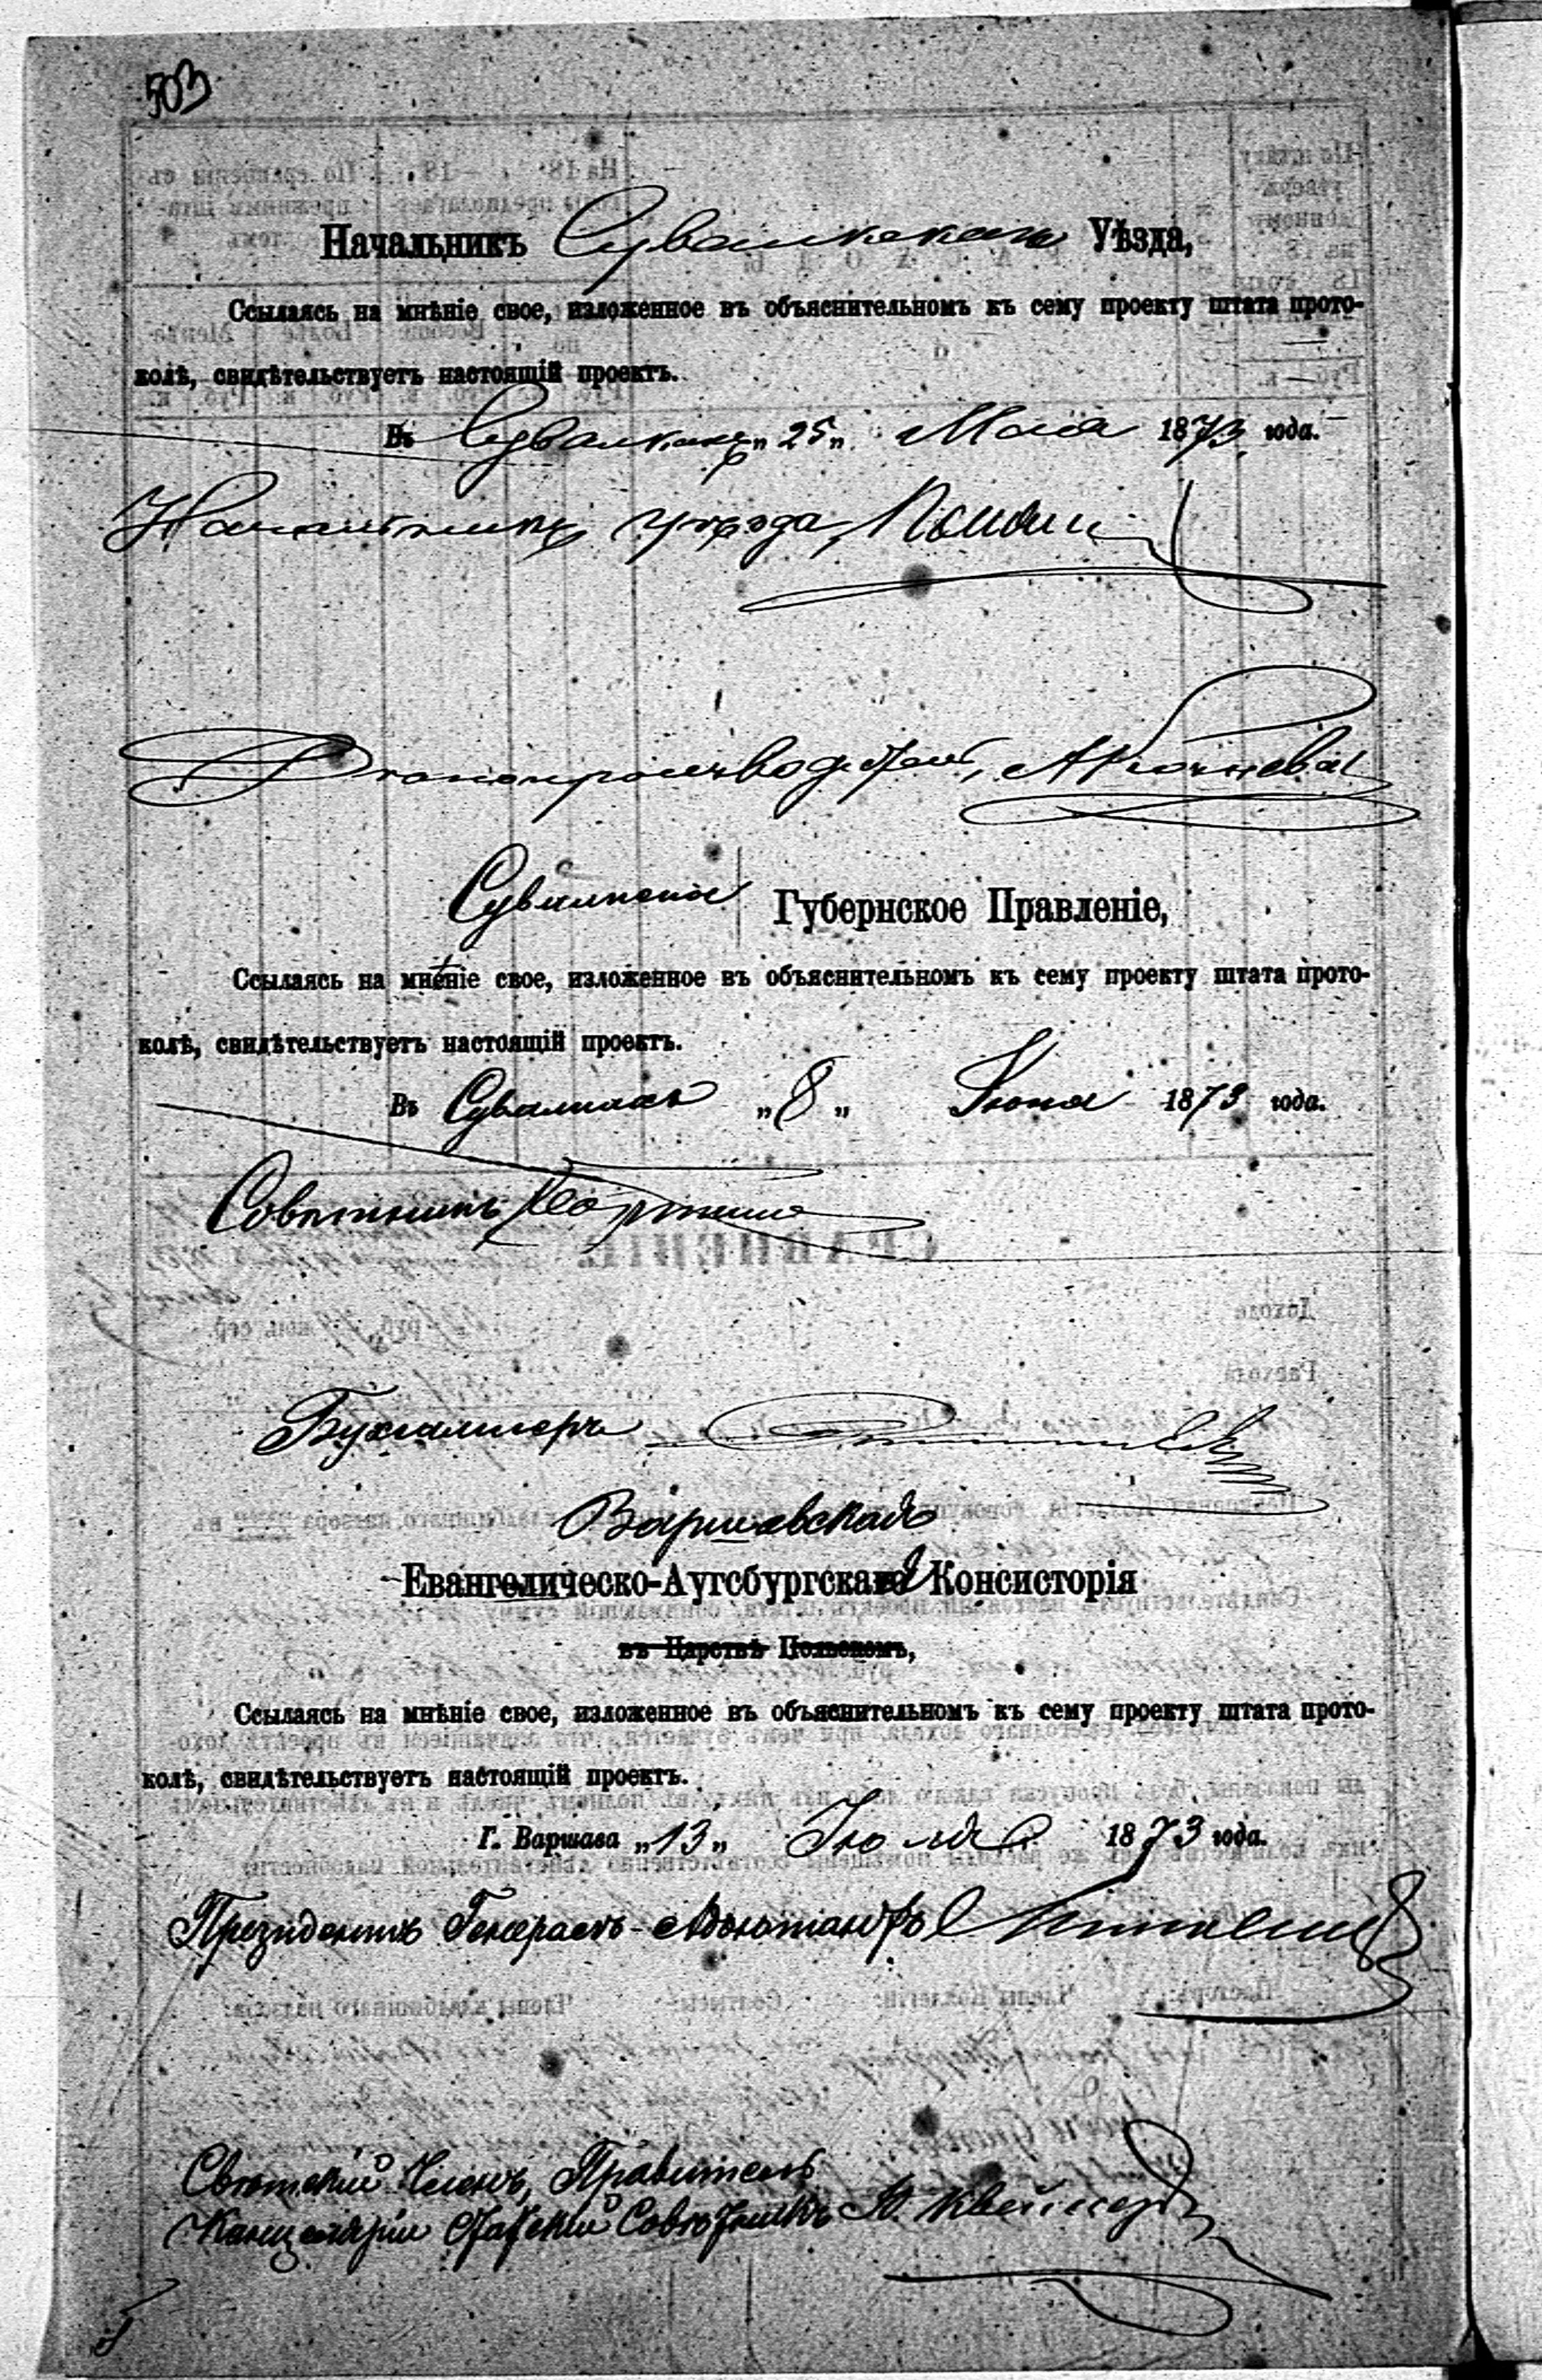 503
Начальникъ Сувалкскаго Уѣзда,
Ссылаясь на мнѣніе свое, изложенное въ объяснительномъ къ сему проекту штата прото-
колѣ, свидѣтельствуетъ настоящій проектъ.
Въ Сувалкахъ „25„ Мая 1873 года.
Начальникъ уѣзда,
Дѣлопроизводитель,
Сувалкское Губернское Правленіе,
Ссылаясь на мнѣніе свое, изложенное въ объяснительномъ къ сему проекту штата прото-
колѣ, свидѣтельствуетъ настоящій проектъ.
Въ Сувалкахъ „8„ Іюня 1873 года.
Совѣтникъ
Бухгалтеръ
Варшавская
Евангелическо-Аугсбургская Консисторія
въ Царствѣ Польскомъ,
Ссылаясь на мнѣніе свое, изложенное въ объяснительномъ къ сему проекту штата прото-
колѣ, свидѣтельствуетъ настоящій проектъ.
Г. Варшава „13„ Іюля 1873 года.
Президентъ Генералъ-Адъютантъ
Свѣтскій Членъ, Правитель
Канцеляріи Статскій Совѣтникъ